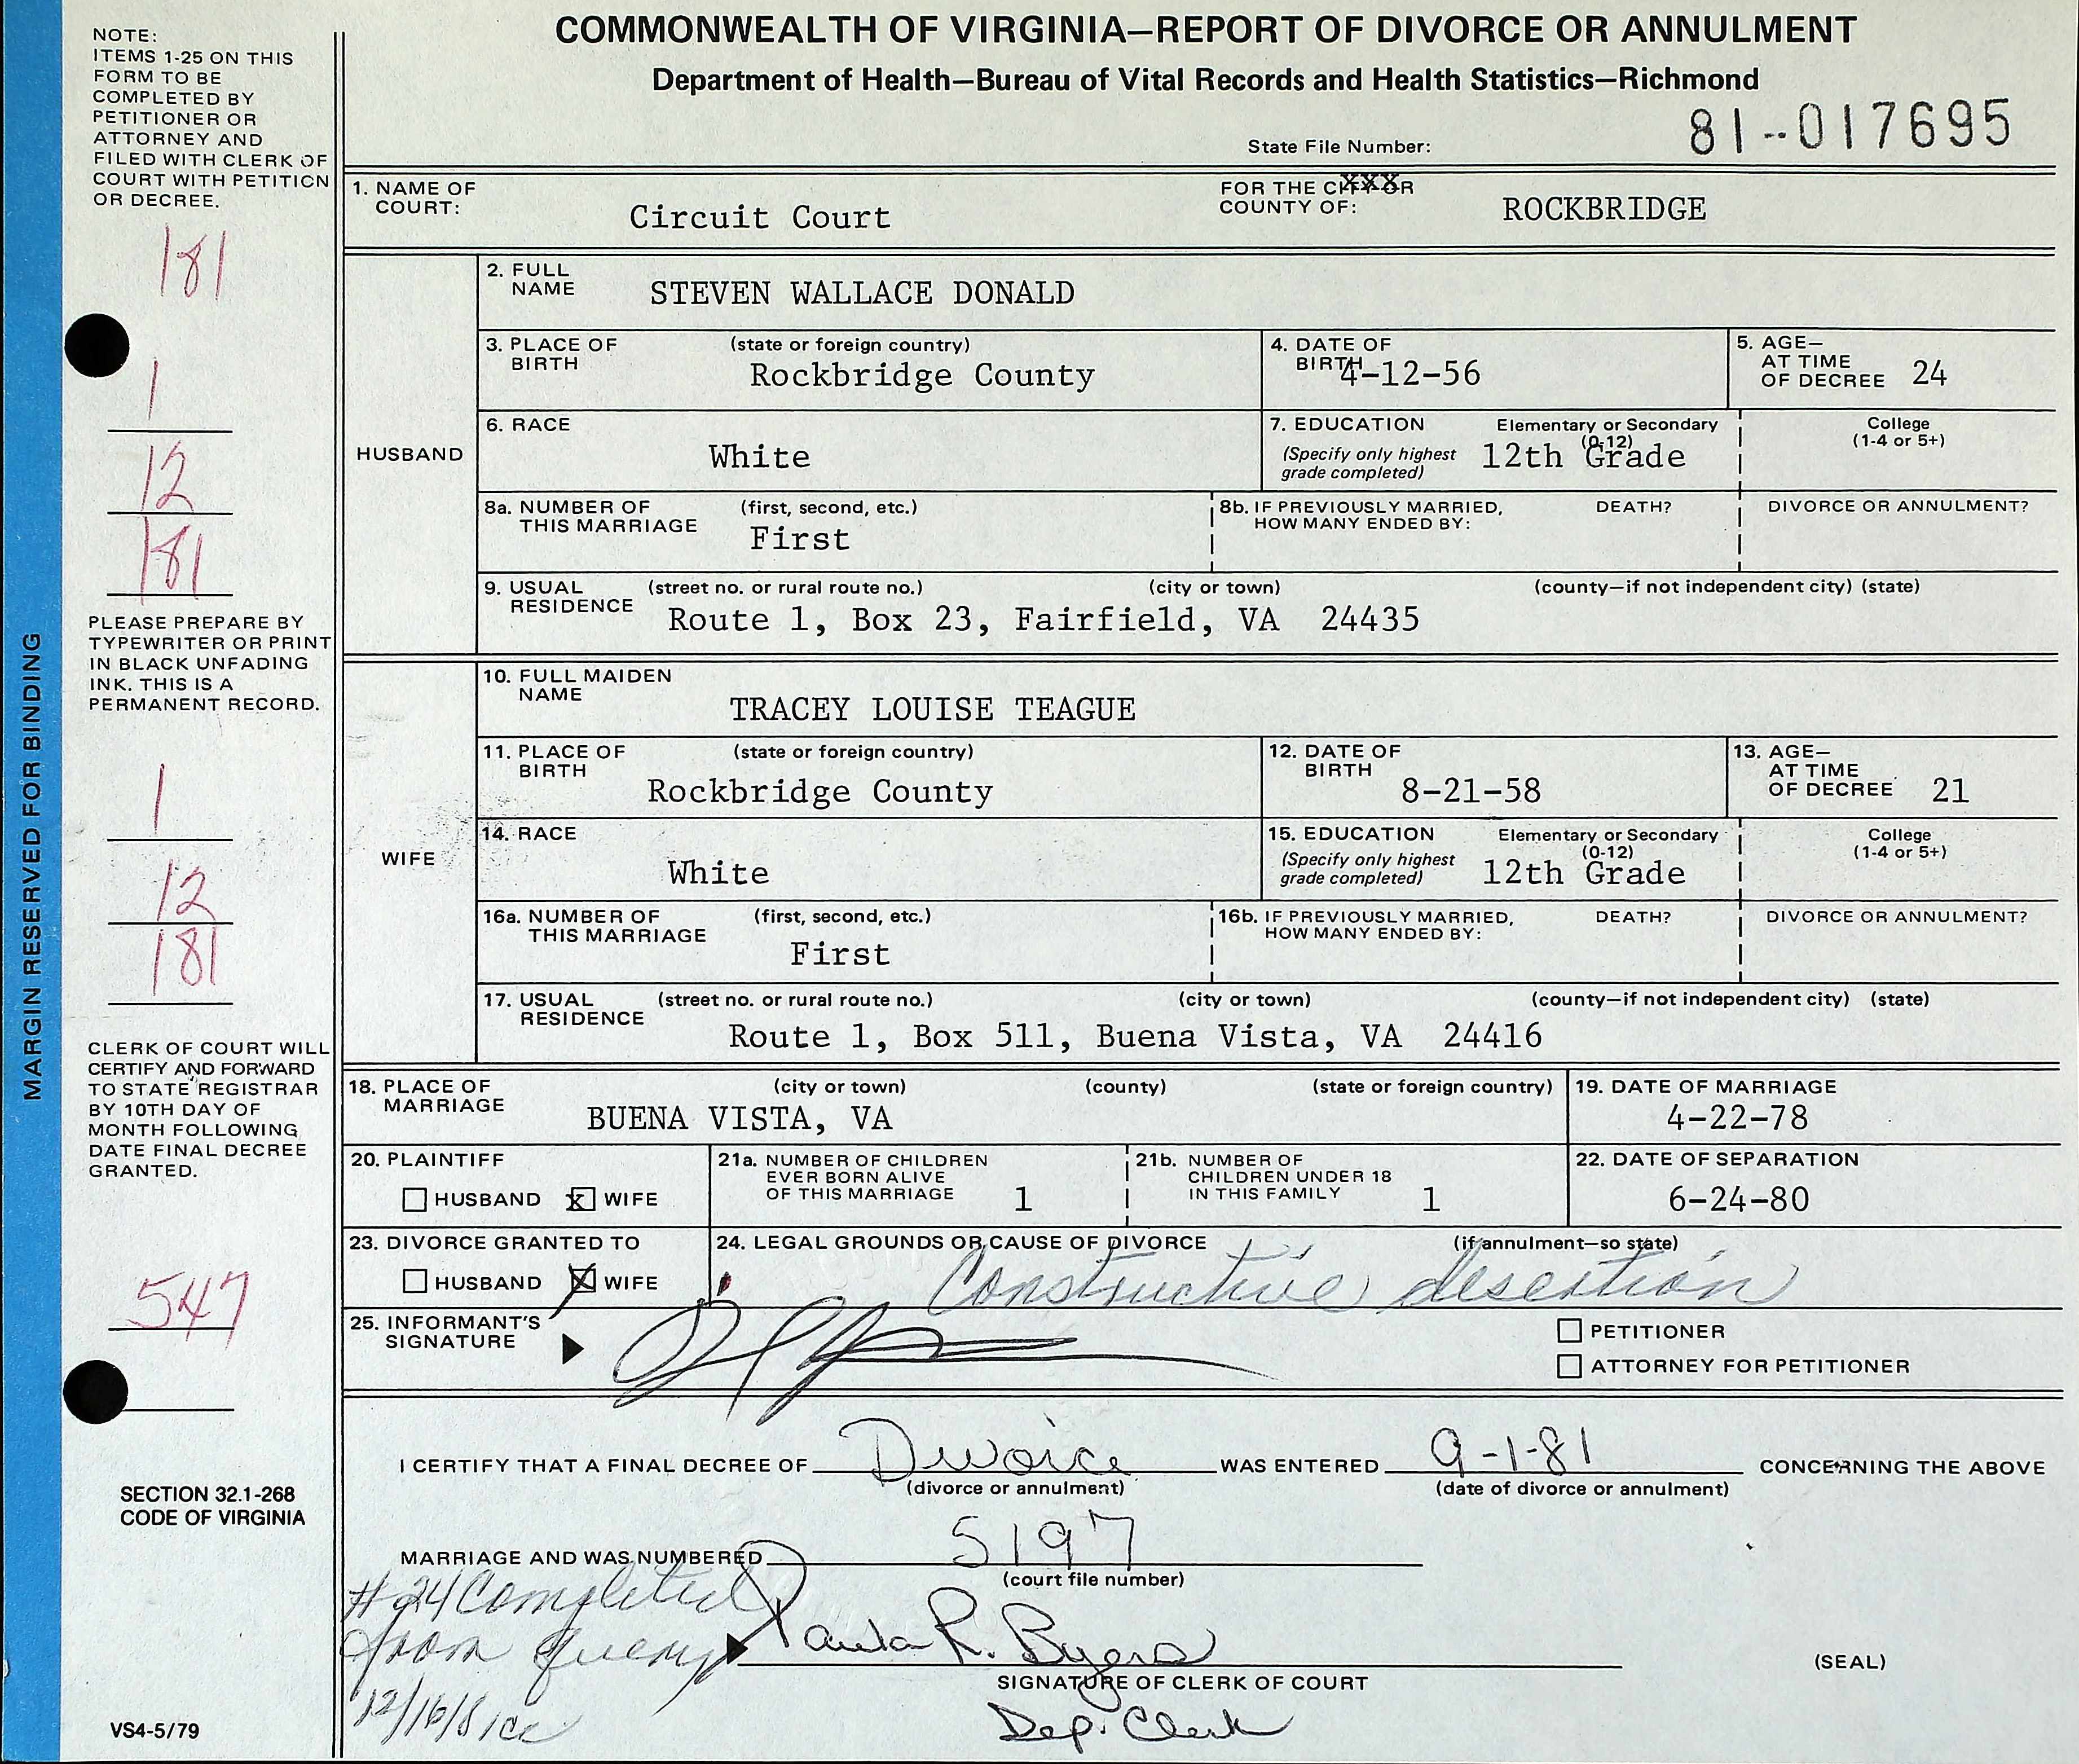 COMMONWEALTH OF VIRGINIA—REPORT OF DIVORCE OR ANNULMENT
Department of Health—Bureau of Vital Records and Health Statistics—Richmond
State File Number: 81--017695
NOTE:
ITEMS 1-25 ON THIS
FORM TO BE
COMPLETED BY
PETITIONER OR
ATTORNEY AND
FILED WITH CLERK OF
COURT WITH PETITION
OR DECREE.
181
1
12
181
PLEASE PREPARE BY
TYPEWRITER OR PRINT
IN BLACK UNFADING
INK. THIS IS A
PERMANENT RECORD.
1
12
181
CLERK OF COURT WILL
CERTIFY AND FORWARD
TO STATE REGISTRAR
BY 10TH DAY OF
MONTH FOLLOWING
DATE FINAL DECREE
GRANTED.
547
SECTION 32.1-268
CODE OF VIRGINIA
VS4-5/79
MARGIN RESERVED FOR BINDING
1. NAME OF COURT: Circuit Court
FOR THE CITY OR XXX
COUNTY OF: ROCKBRIDGE
HUSBAND
2. FULL NAME STEVEN WALLACE DONALD
3. PLACE OF BIRTH (state or foreign country) Rockbridge County
4. DATE OF BIRTH 4-12-56
5. AGE— AT TIME OF DECREE 24
6. RACE White
7. EDUCATION (Specify only highest grade completed) Elementary or Secondary (0-12) 12th Grade
College (1-4 or 5+)
8a. NUMBER OF THIS MARRIAGE (first, second, etc.) First
8b. IF PREVIOUSLY MARRIED, HOW MANY ENDED BY: DEATH? DIVORCE OR ANNULMENT?
9. USUAL RESIDENCE (street no. or rural route no.) (city or town) (county—if not independent city) (state)
Route 1, Box 23, Fairfield, VA 24435
WIFE
10. FULL MAIDEN NAME TRACEY LOUISE TEAGUE
11. PLACE OF BIRTH (state or foreign country) Rockbridge County
12. DATE OF BIRTH 8-21-58
13. AGE— AT TIME OF DECREE 21
14. RACE White
15. EDUCATION (Specify only highest grade completed) Elementary or Secondary (0-12) 12th Grade
College (1-4 or 5+)
16a. NUMBER OF THIS MARRIAGE (first, second, etc.) First
16b. IF PREVIOUSLY MARRIED, HOW MANY ENDED BY: DEATH? DIVORCE OR ANNULMENT?
17. USUAL RESIDENCE (street no. or rural route no.) (city or town) (county—if not independent city) (state)
Route 1, Box 511, Buena Vista, VA 24416
18. PLACE OF MARRIAGE (city or town) (county) (state or foreign country)
BUENA VISTA, VA
19. DATE OF MARRIAGE 4-22-78
20. PLAINTIFF HUSBAND x WIFE
21a. NUMBER OF CHILDREN EVER BORN ALIVE OF THIS MARRIAGE 1
21b. NUMBER OF CHILDREN UNDER 18 IN THIS FAMILY 1
22. DATE OF SEPARATION 6-24-80
23. DIVORCE GRANTED TO HUSBAND X WIFE
24. LEGAL GROUNDS OR CAUSE OF DIVORCE (if annulment—so state)
Constructive desertion
25. INFORMANT'S SIGNATURE
PETITIONER
ATTORNEY FOR PETITIONER
I CERTIFY THAT A FINAL DECREE OF Divorce WAS ENTERED 9-1-81 CONCERNING THE ABOVE
(divorce or annulment) (date of divorce or annulment)
MARRIAGE AND WAS NUMBERED 5197
(court file number)
#24 Completed
from query
12/16/81
Paula R. Byers
SIGNATURE OF CLERK OF COURT
Dep. Clerk
(SEAL)